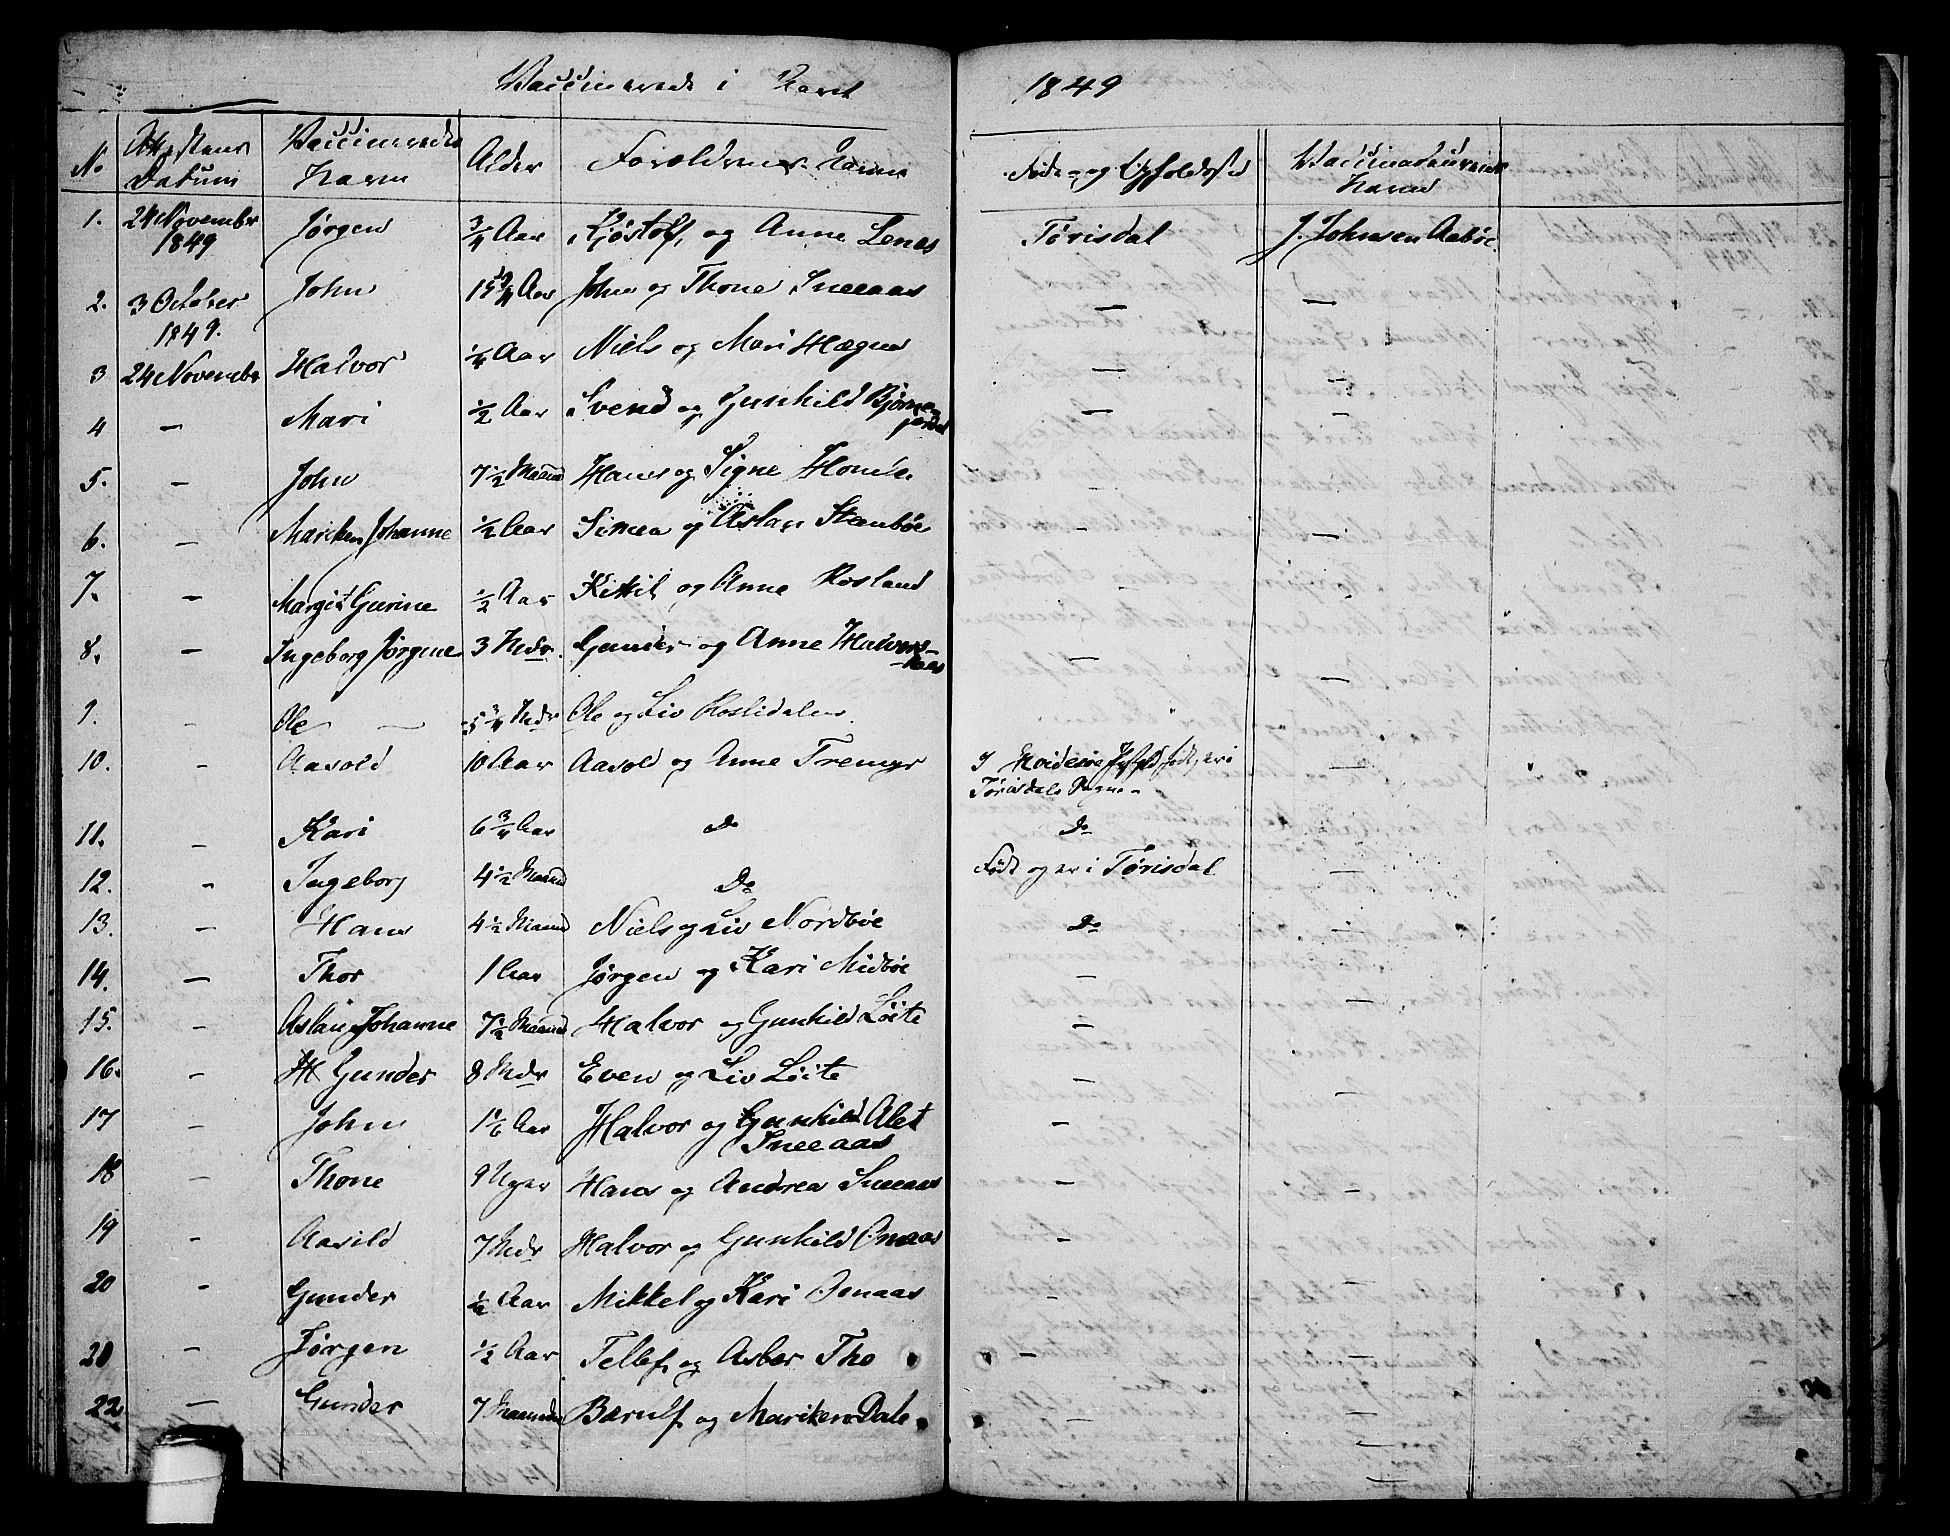 Vaccinerede i Aaret 1849
No Attestens Datum Vaccineredes Navn Alder Forældrenes Navne Føde- og Opholdssted Vaccinateurens Navn
1. 24 November 1849 Jørgen 3/4 Aar Kjøstolf og Anne Lenes Tørisdal J. Johnsen Aabøe.
2. 3 October 1849. John 15 3/4 Aar John og Thone Sneeaas — —
3 24 November Halvor 1/4 Aar Niels og Mari Hægne — —
4 — Mari 1/2 Aar Svend og Gunhild Bjørne- — —
5. — John 7 1/2 Maaned Hans og Signe — —
6. — Mariken Johanne 1/2 Aar og Aslau Stenbøe - —
7. — Margit Gurine 1/2 Aar Kittil og Anne Rosland - -
8. — Ingeborg Jørgine 3 Mdr. Gunder og Anne Halvors- — —
9. - Ole — 5 3/4 Mdr Ole og Liv Roslidalen
10. - Aasold 10 Aar Aasold og Anne Tremyr I født, er i —
Tørisdals Sogn
11. - Kari 6 3/4 Aar Do Do —
12. - Ingeborg 4 1/2 Maaned Do Født og er i Tørisdal —
13. - Hans 4 1/2 Maaned Niels og Liv Nordbøe Do —
14. — Thor 1 Aar Jørgen og Kari Midbøe — —
15. - Aslau Johanne 7 1/2 Maaned Halvor og Gunhild Løite — —
16. - Gunder 8 Mdr Even og Liv Løite — —
17 - John 1 1/6 Aar Halvor og Gunhild Alet — —
Sneeaas
18 - Thone 9 Uger Hans og Andrea Sneeaas - —
19 - Aasild 7 Mdr Halvor og Gunhild Omaas - —
20 - Gunder 1/2 Aar Mikkel og Kari Omaas - —
20 - Jørgen 1/2 Aar Tellef og Asber Tho — —
22 — Gunder 7 Maaneder Bærulf og Mariken Dale — —